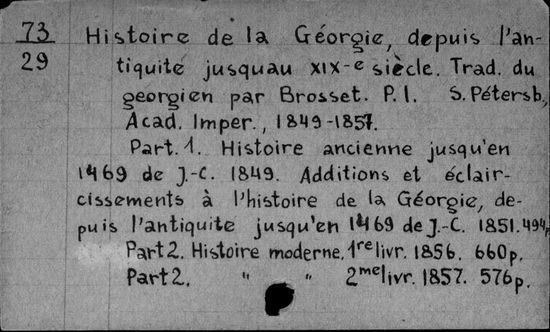 73 Histoire de la Géorgie, depuis l'an-
29 tiquité jusquau XIX-e siècle. Trad. du
georgien par Brosset. P.I. S. Pétersb.,
Acad. Imper., 1849-1857.
Part. 1. Histoire ancienne jusqu'en
1469 de J.-C. 1849. Additions et éclair-
cissements à l'histoire de la Géorgie, de-
puis l'antiquite jusqu'en 1469 de J.-C. 1851. 494p.
Part 2. Histoire moderne. 1re livr. 1856. 660p.
Part 2. " " 2me livr. 1857. 576p.